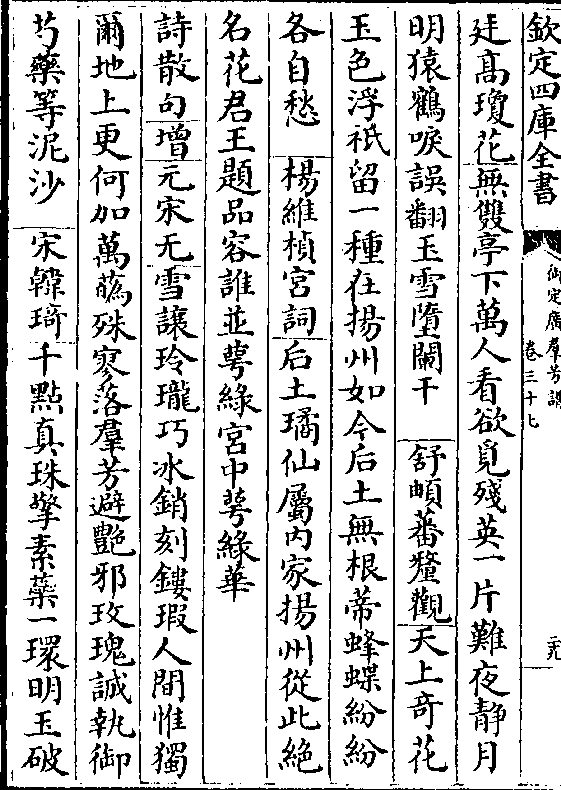 欽定四庫全書
御定廣羣芳譜
卷三十七
廷高瓊花無雙亭下萬人看欲覓殘英一片難夜靜月
明猿鶴唳誤翻玉雪墮闌干　舒頔蕃釐觀天上奇花
玉色浮祇留一種在揚州如今后土無根蒂蜂蝶紛紛
各自愁　楊維楨宮詞后土璚仙屬内家揚州從此絶
名花君王題品容誰並萼緑宮中萼緑華
詩散句増元宋无雪讓玲瓏巧冰銷刻鏤瑕人間惟獨
爾地上更何加萬蘤殊寥落羣芳避艷邪玫瑰誠執御
芍藥等泥沙　宋韓琦千點真珠擎素蘂一環明玉破